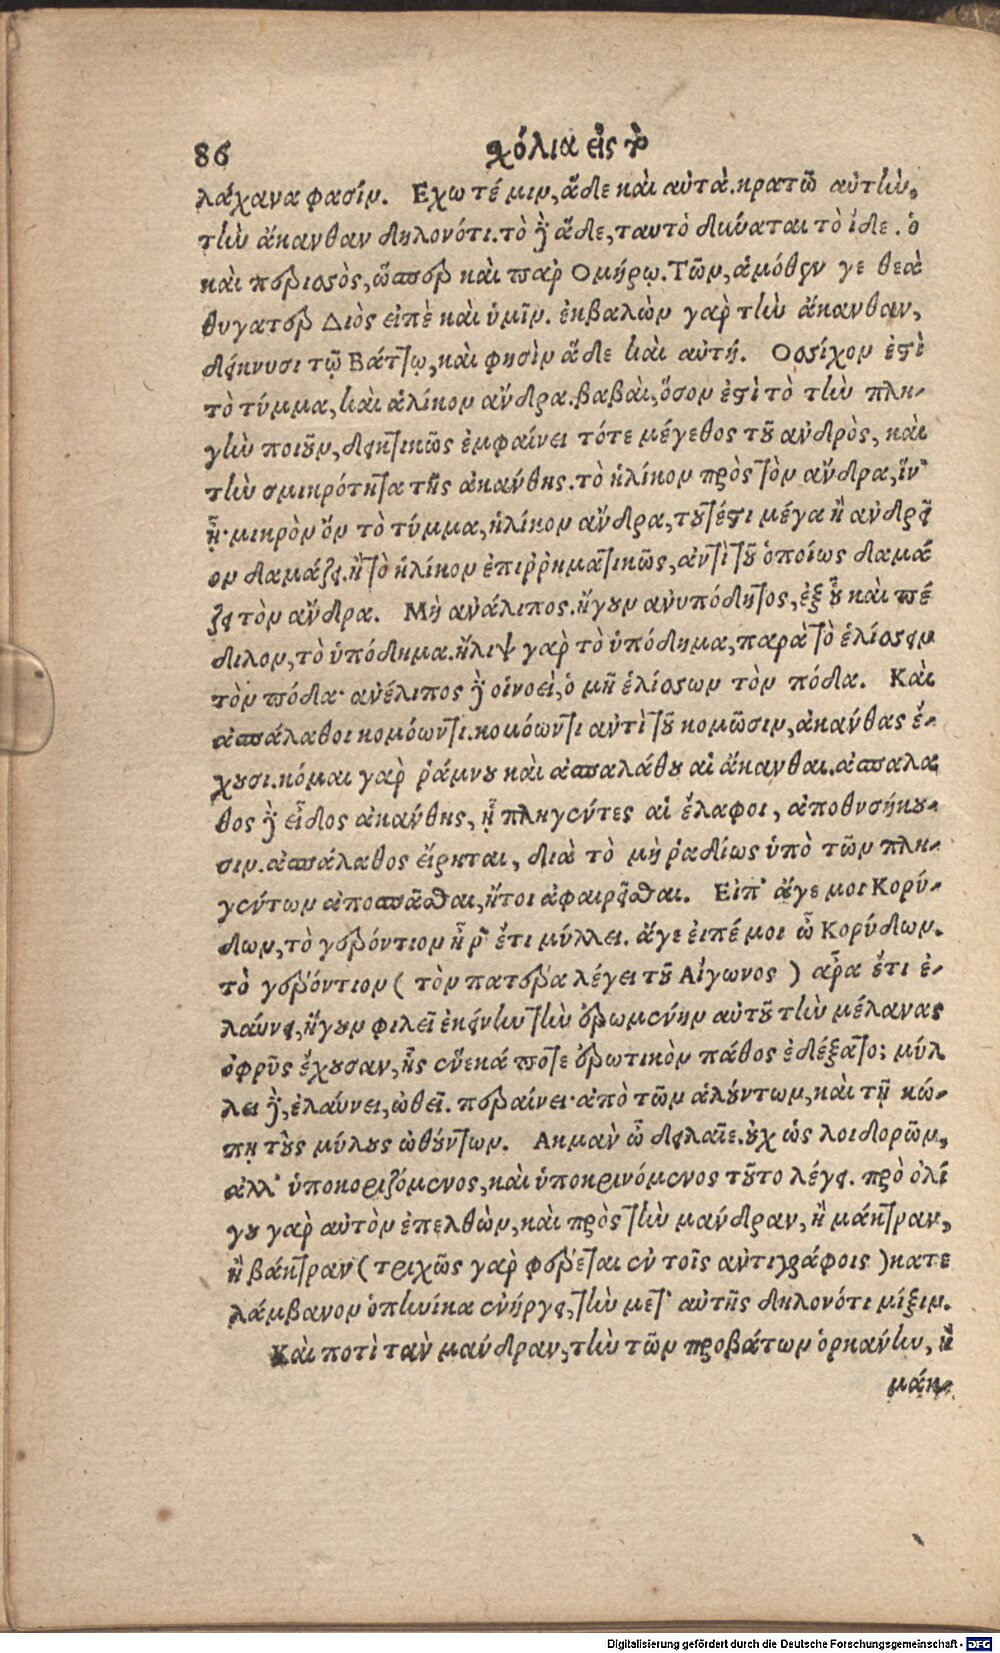 86 χόλια εἰς τὸ
λάχανα φασίν. Εχω τέ μιν, ἅδε καὶ αὐτά. κρατῶ αὐτὴν,
τὴν ἄκανθαν δηλονότι. τὸ ἢ ἅδε, ταυτὸ δύναται τὸ ἴδε. ὁ
καὶ περιοσὸς, ὥσπερ καὶ παρ Ομήρῳ. Τῶν, ἁμόθεν γε θεὰ
θυγατερ Διὸς εἰπὲ καὶ ὑμῖν. ἐκβαλὼν γαρ τὴν ἄκανθαν,
δείκνυσι τῷ Βάττῳ, καὶ φησὶν ἅδε καὶ αὐτή. Οσίχον ἐστὶ
τὸ τύμμα, καὶ ἁλίκον ἄνδρα. βαβαὶ, ὅσον ἐστὶ τὸ τὴν πλη-
γὴν ποιοῦν, δεικτικῶς ἐμφαίνει τότε μέγεθος τοῦ ἀνδρὸς, καὶ
τὴν σμικρότητα τῆς ἀκάνθης. τὸ ἡλίκον πρὸς τὸν ἄνδρα, ἵν'
ᾖ· μικρὸν ὂν τὸ τύμμα, ἡλίκον ἄνδρα, τουτέστι μέγα ἢ ἀνδρεῖ
ον δαμάζει. ἢ τὸ ἡλίκον ἐπιῤῥηματικῶς, ἀντὶ τοῦ ὁποίως δαμά
ζει τὸν ἄνδρα. Μὴ ἀνάλιπος. ἤγουν ἀνυπόδητος, ἐξ οὗ καὶ πέ
διλον, τὸ ὑπόδημα. ἤλιψ γαρ τὸ ὑπόδημα, παρὰ τὸ ἑλίσσειν
τὸν πόδα· ἀνέλιπος ἢ οἱονεὶ, ὁ μὴ ἑλίσσων τὸν πόδα. Καὶ
ἀσπάλαθοι κομόωντι. κομόωντι ἀντὶ τοῦ κομῶσιν, ἀκάνθας ἔ-
χουσι. κόμαι γαρ ῥάμνου καὶ ἀσπαλάθου αἱ ἄκανθαι. ἀσπαλα
θος ἢ εἶδος ἀκάνθης, ᾗ πληγέντες αἱ ἔλαφοι, ἀποθνήσκου-
σιν. ἀσπάλαθος εἴρηται, διὰ τὸ μὴ ῥαδίως ὑπὸ τῶν πλη-
γέντων ἀποσπᾶσθαι, ἤτοι ἀφαιρεῖσθαι. Εἰπ' ἄγε μοι Κορύ-
δων, τὸ γερόντιον ἦ ῥ' ἔτι μύλλει. ἄγε εἰπέ μοι ὦ Κορύδων.
τὸ γερόντιον (τὸν πατέρα λέγει τοῦ Αἴγωνος) ἆρα ἔτι ἐ-
λαύνει, ἤγουν φιλεῖ ἐκείνην τὴν ἐρωμένην αὐτοῦ τὴν μέλανας
ὀφρῦς ἔχουσαν, ἧς ἕνεκά ποτε ἐρωτικὸν πάθος ἐδέξατο; μύλ
λει ἢ, ἐλαύνει, ὠθεῖ. περαίνει· ἀπὸ τῶν ἀλούντων, καὶ τῇ κώ-
πῃ τοὺς μύλους ὠθούντων. Ακμὰν ὦ δείλαιε. οὐχ ὡς λοιδορῶν,
ἀλλ' ὑποκοριζόμενος, καὶ ὑποκρινόμενος τοῦτο λέγει. πρὸ ὀλί
γου γαρ αὐτὸν ἐπελθὼν, καὶ πρὸς τὴν μάνδραν, ἢ μάκτραν,
ἢ βάκτραν (τριχῶς γαρ φέρεται ἐν τοῖς ἀντιγράφοις) κατε
λάμβανον ὁπηνίκα ἐνήργει, τὴν μετ' αὐτῆς δηλονότι μίξιν.
Καὶ ποτὶ τὰν μάνδραν, τὴν τῶν προβάτων ὁρκάνην, ἢ
μάκ-
Digitalisierung gefördert durch die Deutsche Forschungsgemeinschaft - DFG